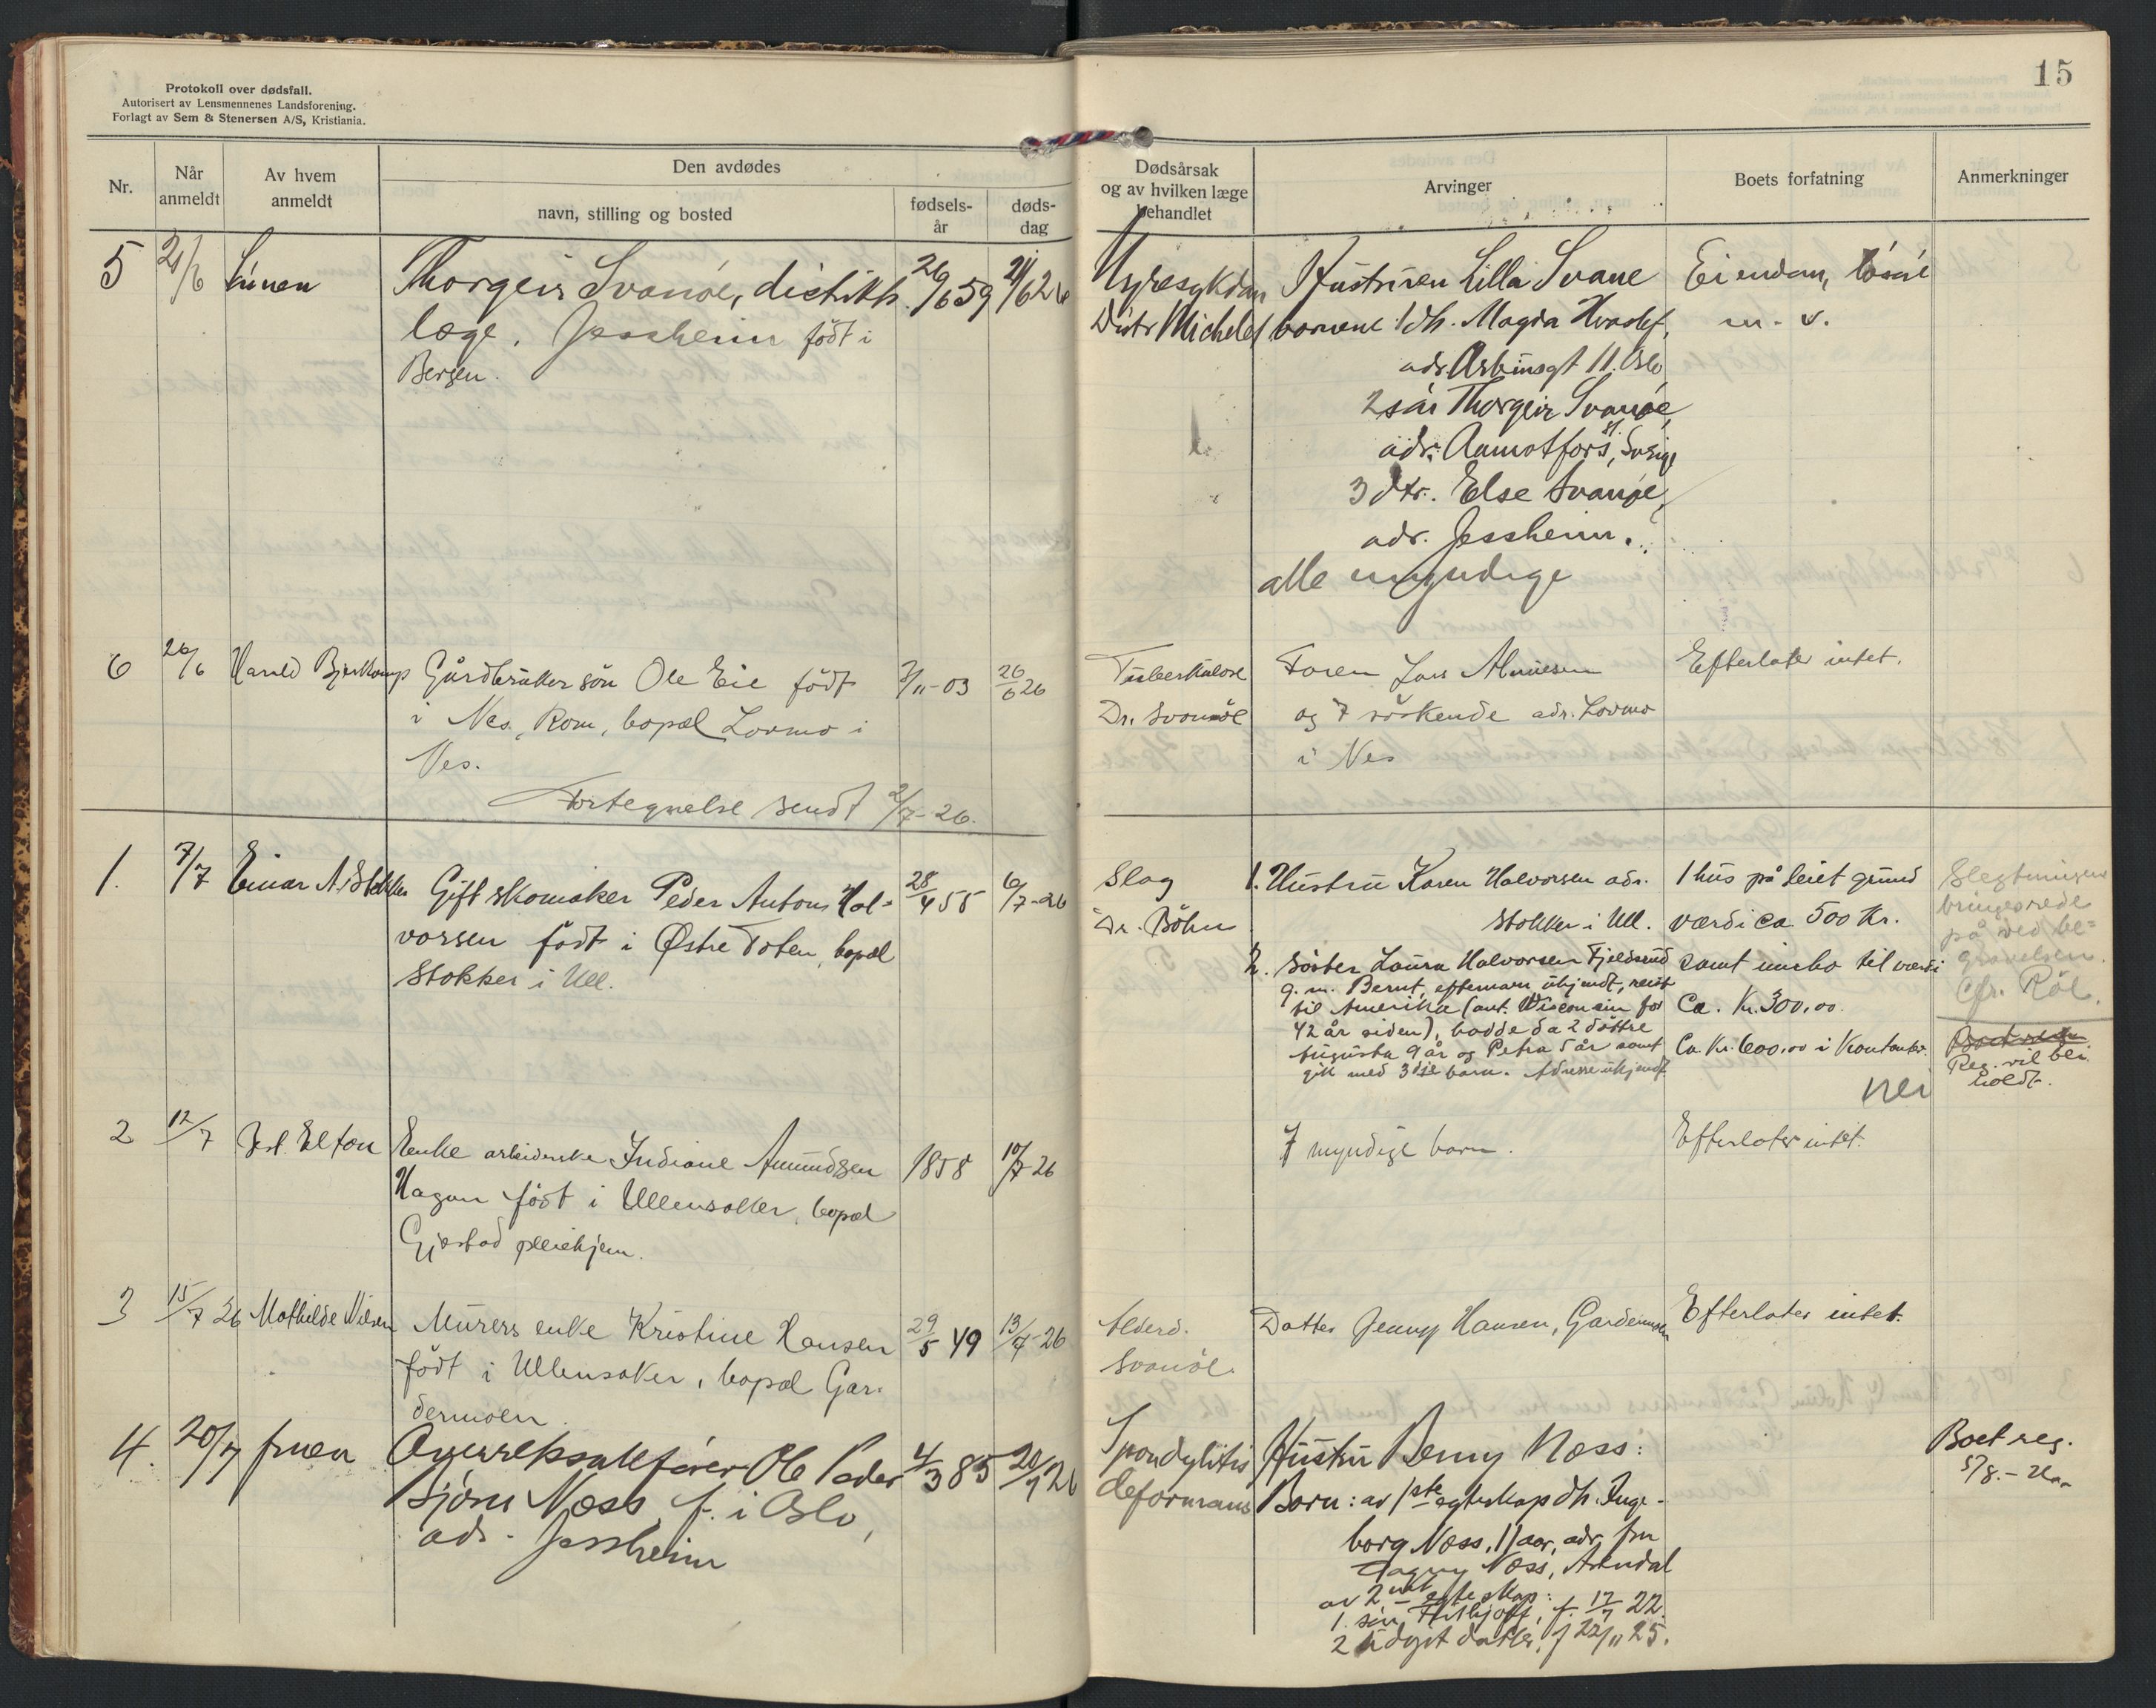 Protokoll over dødsfall.
Autorisert av Lensmennenes Landsforening.
Forlagt av Sem & Stenersen A/S, Kristiania.
15
Nr.
Når anmeldt
Av hvem anmeldt
Den avdødes
navn, stilling og bosted
fødsels-år
døds-dag
Dødsårsak
og av hvilken læge
behandlet
Arvinger
Boets forfatning
Anmerkninger
5
21/6
Thorgeir Svanøe, distrikts
læge, Jessheim født i
Bergen.
26/6 59
21/6 26
Nyresykdom
Distr Michelet
Hustruen Lilla Svanøe
barnene 1 dtr. Magda
adr. Asbiinsgt 11. Oslo
2 søn Thorgeir Svanøe,
adr. Aamotfors, Sverige
3 dtr. Else Svanøe,
adr. Jessheim.
alle myndige
Eiendom, løsøre
m. v.
6
26/6
Harald Bjerkamp
Gårdbruker søn Ole Eie født
i Nes, Rom, bopæl Lovmo i
Nes.
Fortegnelse sendt 2/7-26.
3/11-03
26/6 26
Tuberkulose
Dr. Svanøe
Faren Lars
og 7 søskende adr. Lovmo
i Nes
Efterlater intet.
1.
7/7
Einar A. Stokker
Gift skomaker Peder Anton Hal-
vorsen født i Østre Toten, bopæl
Stokker i Ull.
28/4 55
6/7-26
Slag
Dr. Böhn
1. Hustru Karen Halvorsen adr.
Stokker i Ull.
2. søster Laura Halvorsen Fjeldsrud
g. m. Bernt, efternavn ukjendt, reist
til Amerika (ant. Wisconsin for
42 år siden), hadde da 2 døttre
Augusta 9 år og Petra 5 år samt
gik med 3dje barn. Adresse ukjendt.
1 hus på leiet grund
værdi ca 500 Kr.
samt innbo til værdi
Ca. Kr. 300,00.
Ca. Kr. 600,00 i Kontanter.
nei
bringes rede
på ved be-
gravelsen.
cfr.
Reg. vil bli
holdt.
2
12/7
Elton
Enke arbeiderske Indiane Amundsen
Hagan født i Ullensaker, bopæl
Gjestad pleiehjem.
1858
10/7-26
7 myndige barn.
Efterlater intet.
3
15/7 26
Mathilde Nilsen
Murers enke Kristine Hansen
født i Ullensaker, bopæl Gar-
dermoen.
29/5 49
13/7-26
Alderd.
Svanøe.
Datter Jenny Hansen, Gardermoen
Efterlater intet.
4.
20/7
fruen
Overrettssakfører Ole Peder
Bjørn Næss, f. i Oslo,
adr. Jessheim
4/3 85
20/7 26
Spondylitis
deformans
Hustru Benny Næss:
Barn: av 1ste egteskap dtr. Inge-
borg Næss, 11 aar, adr. fru
Dagny Næss, Arendal
av 2net egteskap:
1. søn, Fridtjoff, f. 17/7 22.
2 udøpt datter, f 22/11 25.
Boet reg.
5/8.-